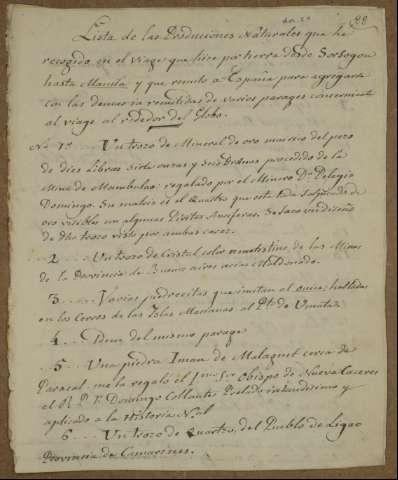 Lista de las Producciones Naturales que he
recogido en el viage que hice por tierra desde Sorsogon
hasta Manila y que remito a España para agregarse
con las demas remitidas de varios parages
al viage al rededor del Globo.
No 1º Un trozo de Mineral de oro masiso del peso
de diez libras siete onzas y seis procedido de la
Mina de Mambulao: regalado por el Minero Dn Pelagio
Domingo. Su matriz es el Quartzo que esta todo de
oro visibles en algunas Piritas Auriferas. Se saco un diseño
de dho trozo visto por ambas caras.
2 Un trozo de Cristal color amatistino, de las Minas
de la Provincia de Buenos aires acia Maldonado.
3 Varias piedrecitas que imitan el onice, halladas
en los Cerros de las Islas Marianas al Pto de Umata.
4 Idem del mismo parage
5 Una piedra Iman de Malaguit cerca de
Paracal, me la regalo el Ilmo Sr Obispo de Nueva Caceres
el R. P. F. Domingo Collantes Prelado y
aplicado a la Historia Nal
6 Un trozo de Quartzo, del Pueblo de Ligao
Provincia de Camarines.